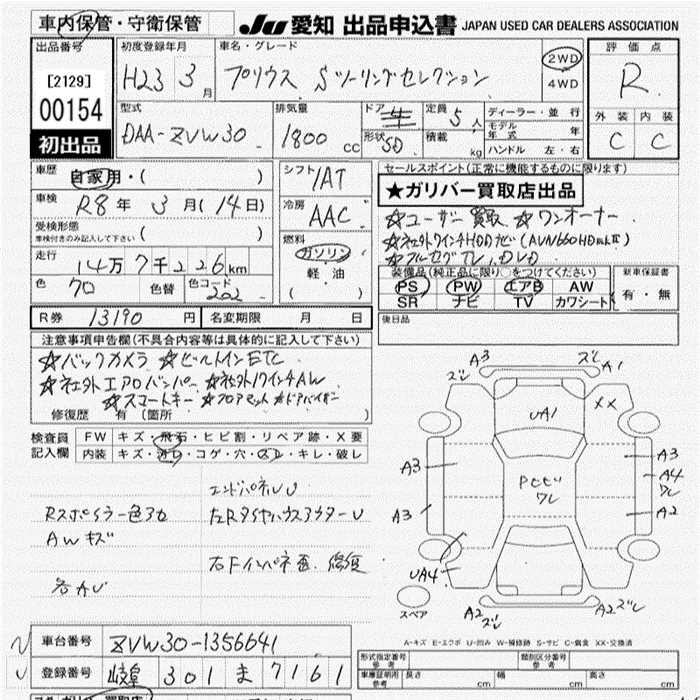 車内保管・守衛保管
JU 愛知 出品申込書 JAPAN USED CAR DEALERS ASSOCIATION
出品番号
[2129]
00154
初出品
初度登録年月
H23 3月
車名・グレード
プリウス Sツーリングセレクション
2WD
4WD
評価点
R
外装 内装
C C
型式
DAA-ZVW30
排気量
1800cc
ドア
形状 5D
定員 5人
積載 kg
ディーラー・並行
モデル年式 年
ハンドル 左・右
車歴
自家用・( )
車検 R8年 3月(14日)
受検形態
車検付きのみ記入して下さい ( )
走行
14万7千226km
色 70 色替 色コード 202
シフト
1AT
冷房
AAC
燃料
ガソリン
軽油
( )
セールスポイント(正常に機能するものに限ります)
★ガリバー買取店出品
☆ユーザー買取 ☆ワンオーナー
☆社外9インチHDDナビ(AVN660HDmkII)
☆フルセグTV、DVD
装備品(純正品に限り○をつけてください)
PS PW エアB AW
SR ナビ TV カワシート
新車保証書
有・無
R券 13190円 名変期限 月 日
後日品
注意事項申告欄(不具合内容等は具体的に記入して下さい)
☆バックカメラ ☆ビルトインETC
☆社外エアロバンパー ☆社外19インチAW
☆スマートキー ☆フロアマット ☆ドアバイザー
修復歴 有 [箇所 ]
検査員記入欄
FW キズ・飛石・ヒビ割・リペア跡・X要
内装 キズ・汚レ・コゲ・穴・スレ・キレ・破レ
エンドパネルU
Rスポイラー色アセ
左RタイヤハウスアウターU
AWキズ
右Fインパネ歪、修復
各AU
A3 ズレ ズレ A1
UA1
XX
A3
A3
A3
A4
ワレ
A2
PCセU
ワレ
UA4
スペア
A2ズレ
A2ズレ
A-キズ E-エクボ U-凹み W-補修跡 S-サビ C-腐食 XX-交換済
車台番号 ZVW30-1356641
登録番号 岐阜 301 ま 7161
形式指定番号 参考
類別区分番号 参考
車庫証明用 参考 長さ cm 幅 cm 高さ cm